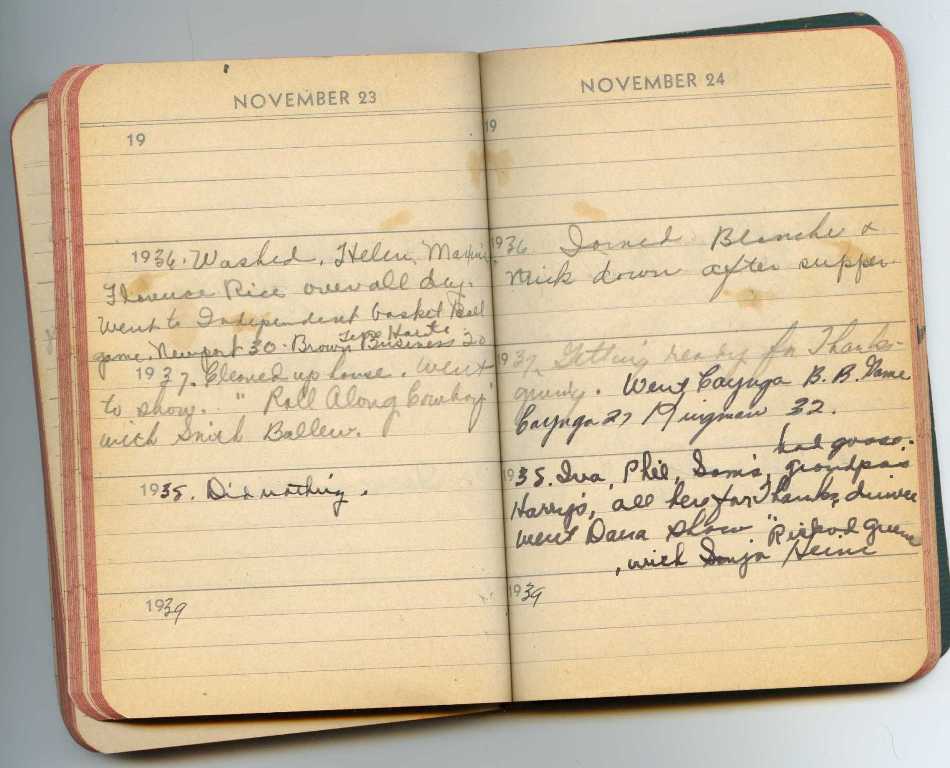 NOVEMBER 23
19
1936. Washed. Helen, Maxine
Florence Rice over all day.
Went to Independent basket Ball
Terre Haute
game. Newport 30 - Brown Business 20
1937. Cleaned up house. Went
to show. " Roll Along Cowboy"
with Smith Ballew.
1938. Did nothing.
1939
NOVEMBER 24
19
1936 Joined Blanche &
Mick down after supper.
1937. Getting ready for Thanks-
giving. Went Cayuga B. B. Game
Cayuga 27 Kingman 32.
had goose.
1938. Iva, Phil, Sam's, grandpas
Harry's, all here for Thanks. dinner
went Dana show "
, with Sonja Heine
1939